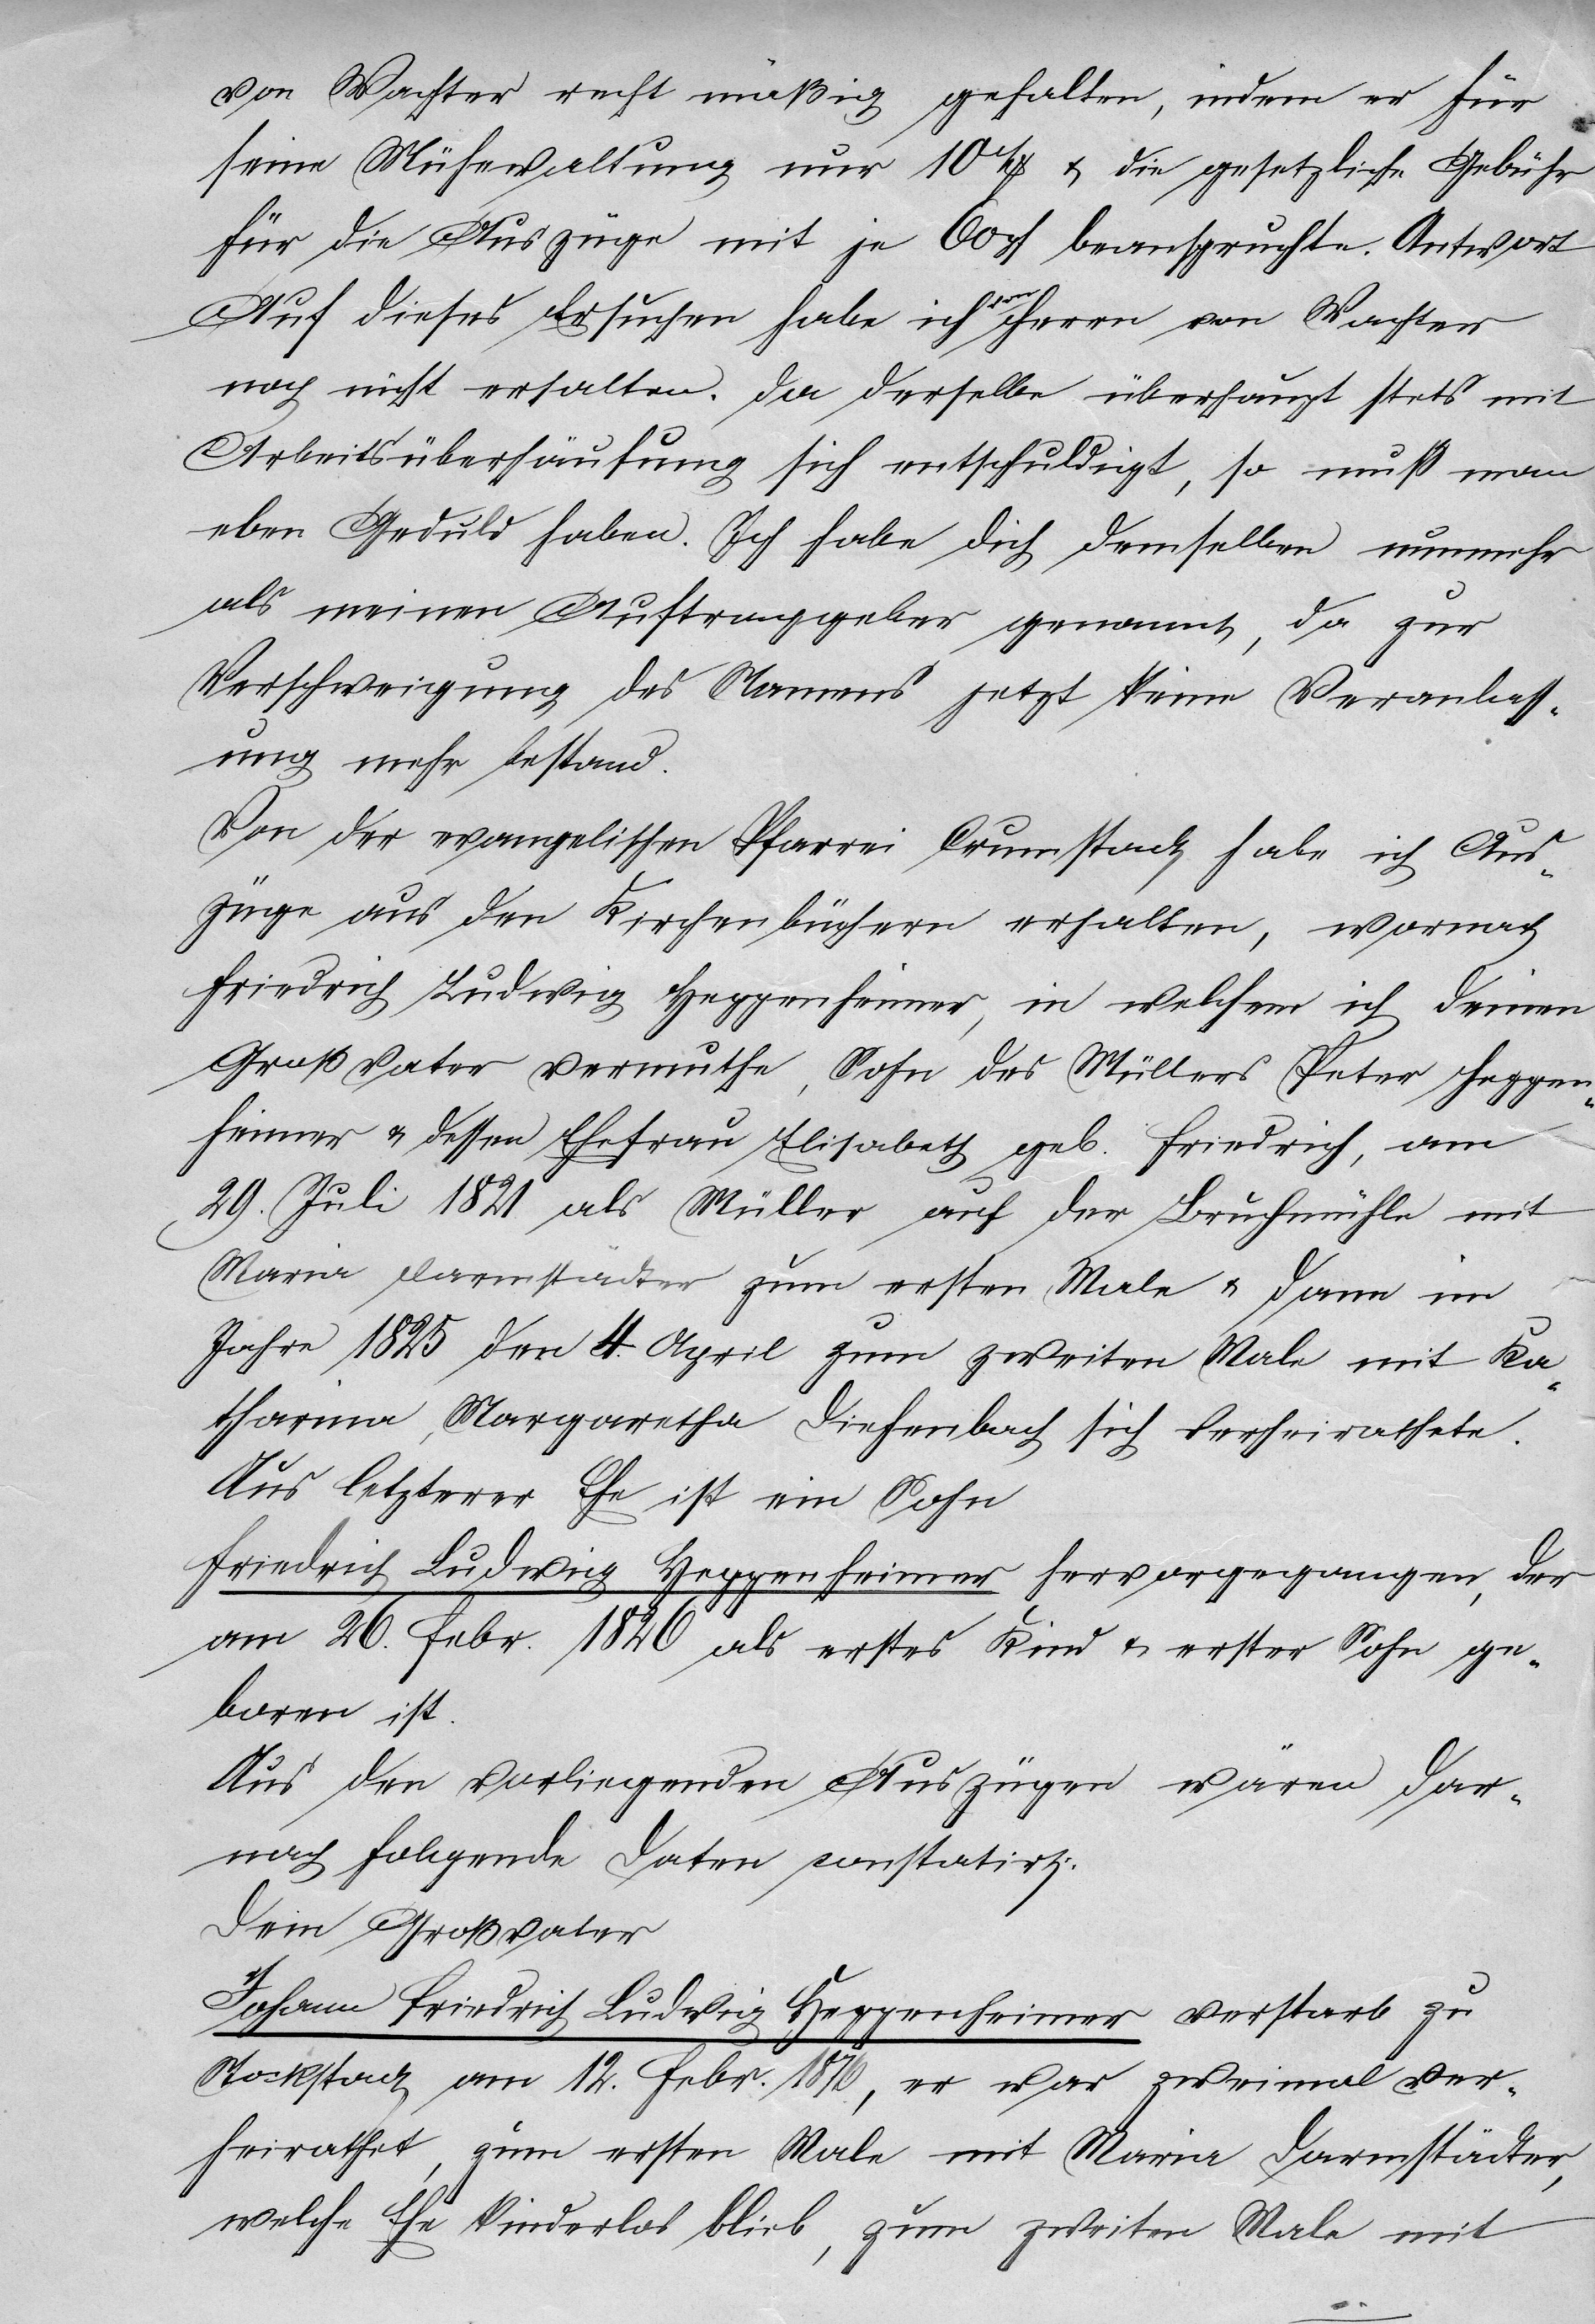 von Wachter recht mäßig gehalten, indem er für
seine Mühewaltung nur 10 M & die gesetzliche Gebühr
für die Auszüge mit je 60 Pf beanspruchte. Antwort
Auf dieses Ersuchen habe ich von Herrn von Wachter
noch nicht erhalten. Da derselbe überhaupt stets mit
Arbeitsüberhäufung sich entschuldigt, so muß man
eben Geduld haben. Ich habe dich demselben nunmehr
als meinen Auftraggeber genannt, da zur
Verschweigung des Namens jetzt keine Veranlass-
ung mehr bestand.
Von der evangelischen Pfarrei Crumstadt habe ich Aus-
züge aus den Kirchenbüchern erhalten, wornach
Friedrich Ludwig Heppenheimer, in welchem ich deinen
Großvater vermuthe, Sohn des Müllers Peter Heppen-
heimer & dessen Ehefrau Elisabeth geb. Friedrich, am
29. Juli 1821 als Müller auf der Bruchmühle mit
Maria Darmstädter zum ersten Male & dann im
Jahre 1825 den 4. April zum zweiten Male mit Ka-
tharina, Margaretha Diefenbach sich verheirathete.
Aus letzterer Ehe ist ein Sohn
Friedrich Ludwig Heppenheimer hervorgegangen, der
am 26. Febr. 1826 als erstes Kind & erster Sohn ge-
boren ist.
Aus den vorliegenden Auszügen wären dar-
nach folgende Daten constatirt:
Dein Großvater
Johann Friedrich Ludwig Heppenheimer verstarb zu
Stockstadt am 12. Febr. 1876, er war zweimal ver-
heirathet, zum ersten Male mit Maria Darmstädter,
welche Ehe kinderlos blieb, zum zweiten Male mit